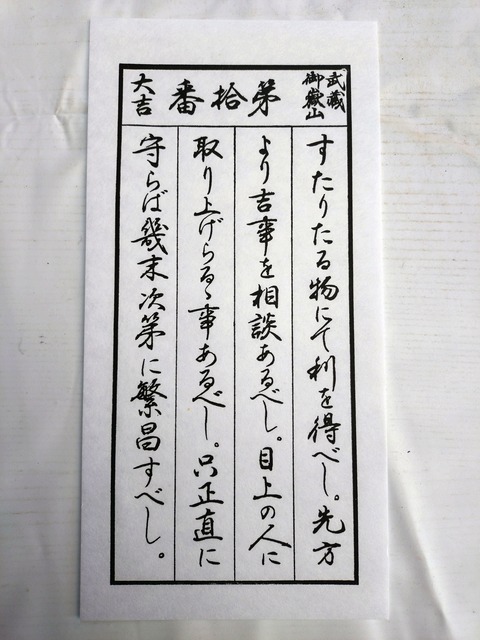 武蔵
御嶽山
第拾番
大吉
すたりたる物にて利を得べし。先方
より吉事を相談あるべし。目上の人に
取り上げらるゝ事あるべし。只正直に
守らば幾末次第に繁昌すべし。